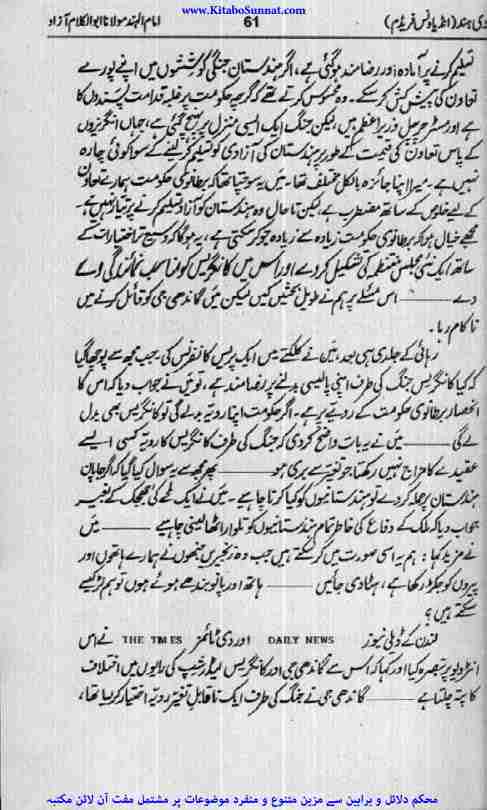 www.KitaboSunnat.com
دی ہند (انڈیا ونس فریڈم) 61 امام الہند مولانا ابوالکلام آزاد
تسلیم کرنے پر آمادہ اور رضامند ہوگئی ہے، اگر ہندستان جنگی کوششوں میں اپنے پورے
تعاون کی پیش کش کرسکے۔ وہ محسوس کرتے تھے کہ گرچہ حکومت پر غلبہ قدامت پسندوں کا
ہے اور مسٹر چرچل وزیر اعظم ہیں، لیکن جنگ ایک ایسی منزل پر پہنچ گئی ہے، جہاں انگریزوں
کے پاس تعاون کی قیمت کے طور پر ہندستان کی آزادی کو تسلیم کرلینے کے سوا کوئی چارہ
نہیں ہے۔ میرا اپنا جائزہ بالکل مختلف تھا۔ میں یہ سوچتا تھا کہ برطانوی حکومت ہمارے تعاون
کے لیے خلوص کے ساتھ مضطرب ہے، لیکن تاحال وہ ہندستان کو آزاد تسلیم کرنے پر تیار نہیں ہے۔
مجھے خیال ہوا کہ برطانوی حکومت زیادہ سے زیادہ جو کرسکتی ہے، یہ ہوگا کہ وسیع تر اختیارات کے
ساتھ ایک نئی مجلس منتظمہ کی تشکیل کردے اور اس میں کانگریس کو مناسب نمائندگی دے
دے ـــــــ اس مسئلے پر ہم نے طویل بحثیں کیں لیکن میں گاندھی جی کو قائل کرنے میں
ناکام رہا۔
رہائی کے جلدی ہی بعد، میں نے کلکتے میں ایک پریس کانفرنس کی۔ جب مجھ سے پوچھا گیا
کہ کیا کانگریس جنگ کی طرف اپنی پالیسی بدلنے پر رضامند ہے، تو میں نے جواب دیا کہ اس کا
انحصار برطانوی حکومت کے رویے پر ہے۔ اگر حکومت اپنا رویہ بدلے گی تو کانگریس بھی بدل
لے گی ـــــــ میں نے یہ بات واضح کردی کہ جنگ کی طرف کانگریس کا رویہ کسی ایسے
عقیدے کا مزاج نہیں رکھتا، جو تغیر سے بری ہو ـــــــ پھر مجھ سے یہ سوال کیا گیا کہ اگر جاپان
ہندستان پر حملہ کردے تو ہندستانیوں کو کیا کرنا چاہیے۔ میں نے ایک لمحے کی جھجک کے بغیر
جواب دیا کہ ملک کے دفاع کی خاطر تمام ہندستانیوں کو تلوار اٹھا لینی چاہیے ـــــــ میں
نے مزید کہا: ہم یہ اسی صورت میں کرسکتے ہیں جب وہ زنجیریں جنھوں نے ہمارے ہاتھوں اور
پیروں کو جکڑ رکھا ہے، ہٹا دی جائیں ـــــــ ہاتھ اور پانو بندھے ہوئے ہوں تو ہم لڑ کیسے
سکتے ہیں؟
لندن کے ڈیلی نیوز DAILY NEWS اور دی ٹائمز THE TIMES نے اس
انٹرویو پر تبصرہ کیا اور کہا کہ اس سے گاندھی جی اور کانگریس لیڈرشپ کی رایوں میں اختلاف
کا پتہ چلتا ہے ـــــــ گاندھی جی نے جنگ کی طرف ایک ناقابل تغیر رویہ اختیار کرلیا تھا،
محکم دلائل و براہین سے مزین متنوع و منفرد موضوعات پر مشتمل مفت آن لائن مکتبہ